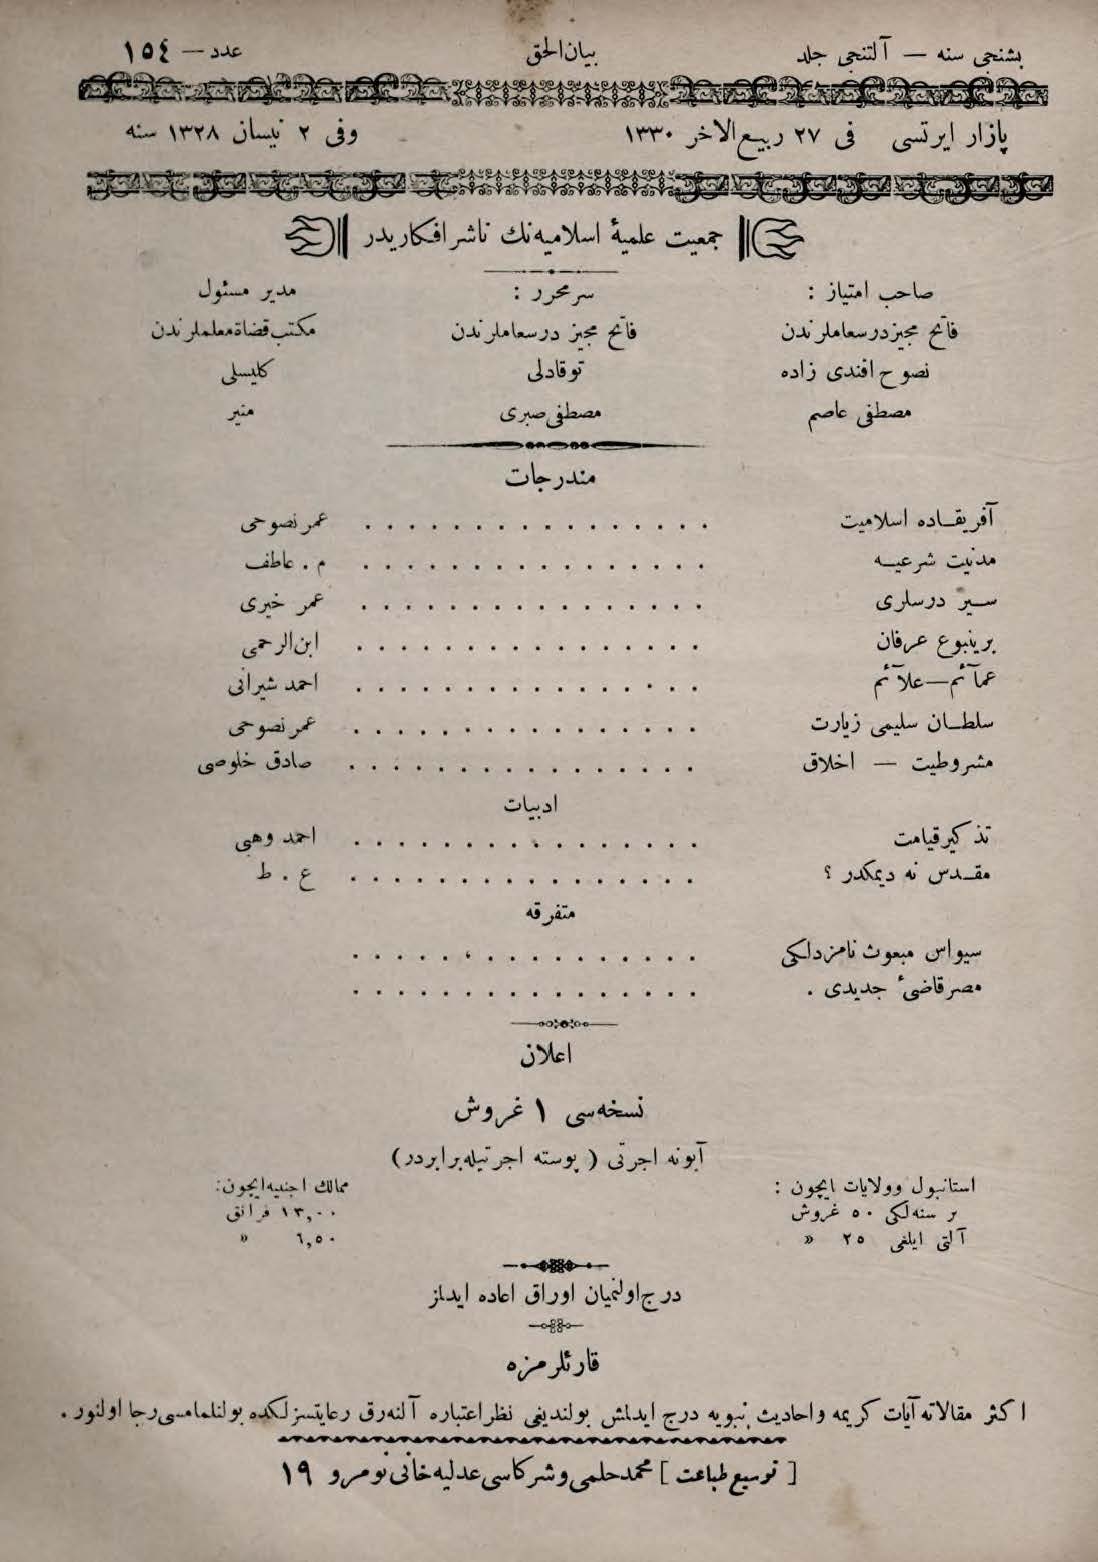 بشنجی سنه — آلتنجی جلد بیان‌الحق عدد — ١٥٤
پازار ایرتسی فی ٢٧ ربیع‌الاخر ١٣٣٠ وفی ٢ نیسان ١٣٢٨ سنه
جمعیت علمیۀ اسلامیه‌نك ناشر افکاریدر
صاحب امتیاز : سرمحرر : مدیر مسئول
فاتح مجیزدرسعاملرندن فاتح مجیز درسعاملرندن مكتب قضاة معلملرندن
نصوح افندی زاده توقادلی كلیسلی
مصطفی عاصم مصطفی صبری منیر
مندرجات
آفریقاده اسلامیت . . . . . . . . . . . . . . . . عمر نصوحی
مدنیت شرعیه . . . . . . . . . . . . . . . . م . عاطف
سیر درسلری . . . . . . . . . . . . . . . . عمر خیری
برینبوع عرفان . . . . . . . . . . . . . . . . ابن‌الرحمی
عمآئم — علآئم . . . . . . . . . . . . . . . . احمد شیرانی
سلطان سلیمی زیارت . . . . . . . . . . . . . . . . عمر نصوحی
مشروطیت — اخلاق . . . . . . . . . . . . . . . . صادق خلوصی
ادبیات
تذكیر قیامت . . . . . . . . . . . . . . . . احمد وهبی
مقدس نه دیمكدر ؟ . . . . . . . . . . . . . . . . ع . ط
متفرقه
سیواس مبعوث نامزدلكی . . . . . . . . . . . . . . . .
مصر قاضیٔ جدیدی . . . . . . . . . . . . . . . . .
اعلان
نسخه‌سی ١ غروش
آبونه اجرتی ( پوسته اجرتیله برابردر)
استانبول وولایات ایچون : ممالك اجنبیه ایچون:
بر سنه‌لكی ٥٠ غروش ١٣,٠٠ فرانق
آلتی ایلغی ٢٥ » ٦,٥٠ »
درج اولنمیان اوراق اعاده ایدلمز
قارئلرمزه
اكثر مقالاته آیات كریمه واحادیث نبویه درج ایدلمش بولندیغی نظر اعتباره آلنه‌رق رعایتسزلكده بولنلمامسی رجا اولنور .
[ توسیع طباعت ] محمد حلمی وشركاسی عدلیه خانی نومرو ١٩